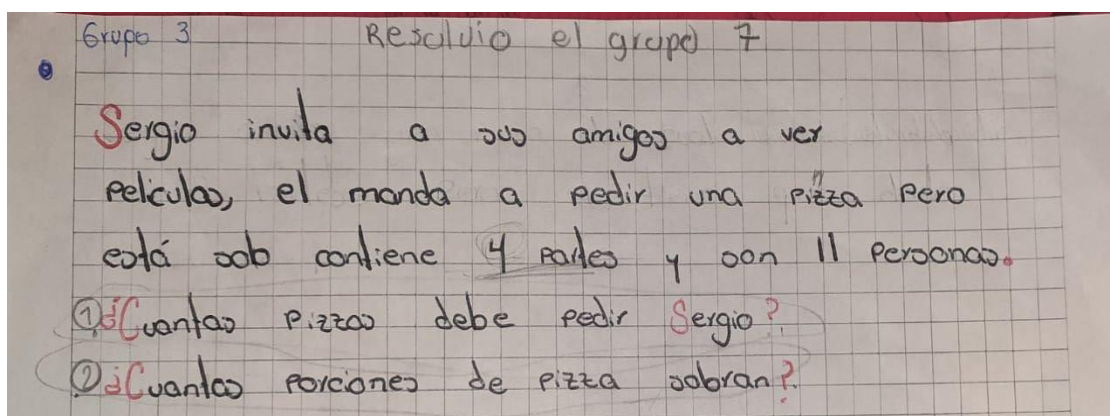 Grupo 3 Resolvio el grupo 7
Sergio invita a sus amigos a ver
peliculas, el manda a pedir una pizza pero
está solo contiene 4 partes y son 11 personas.
① ¿Cuantas pizzas debe pedir Sergio?
② ¿Cuantas porciones de pizza sobran?